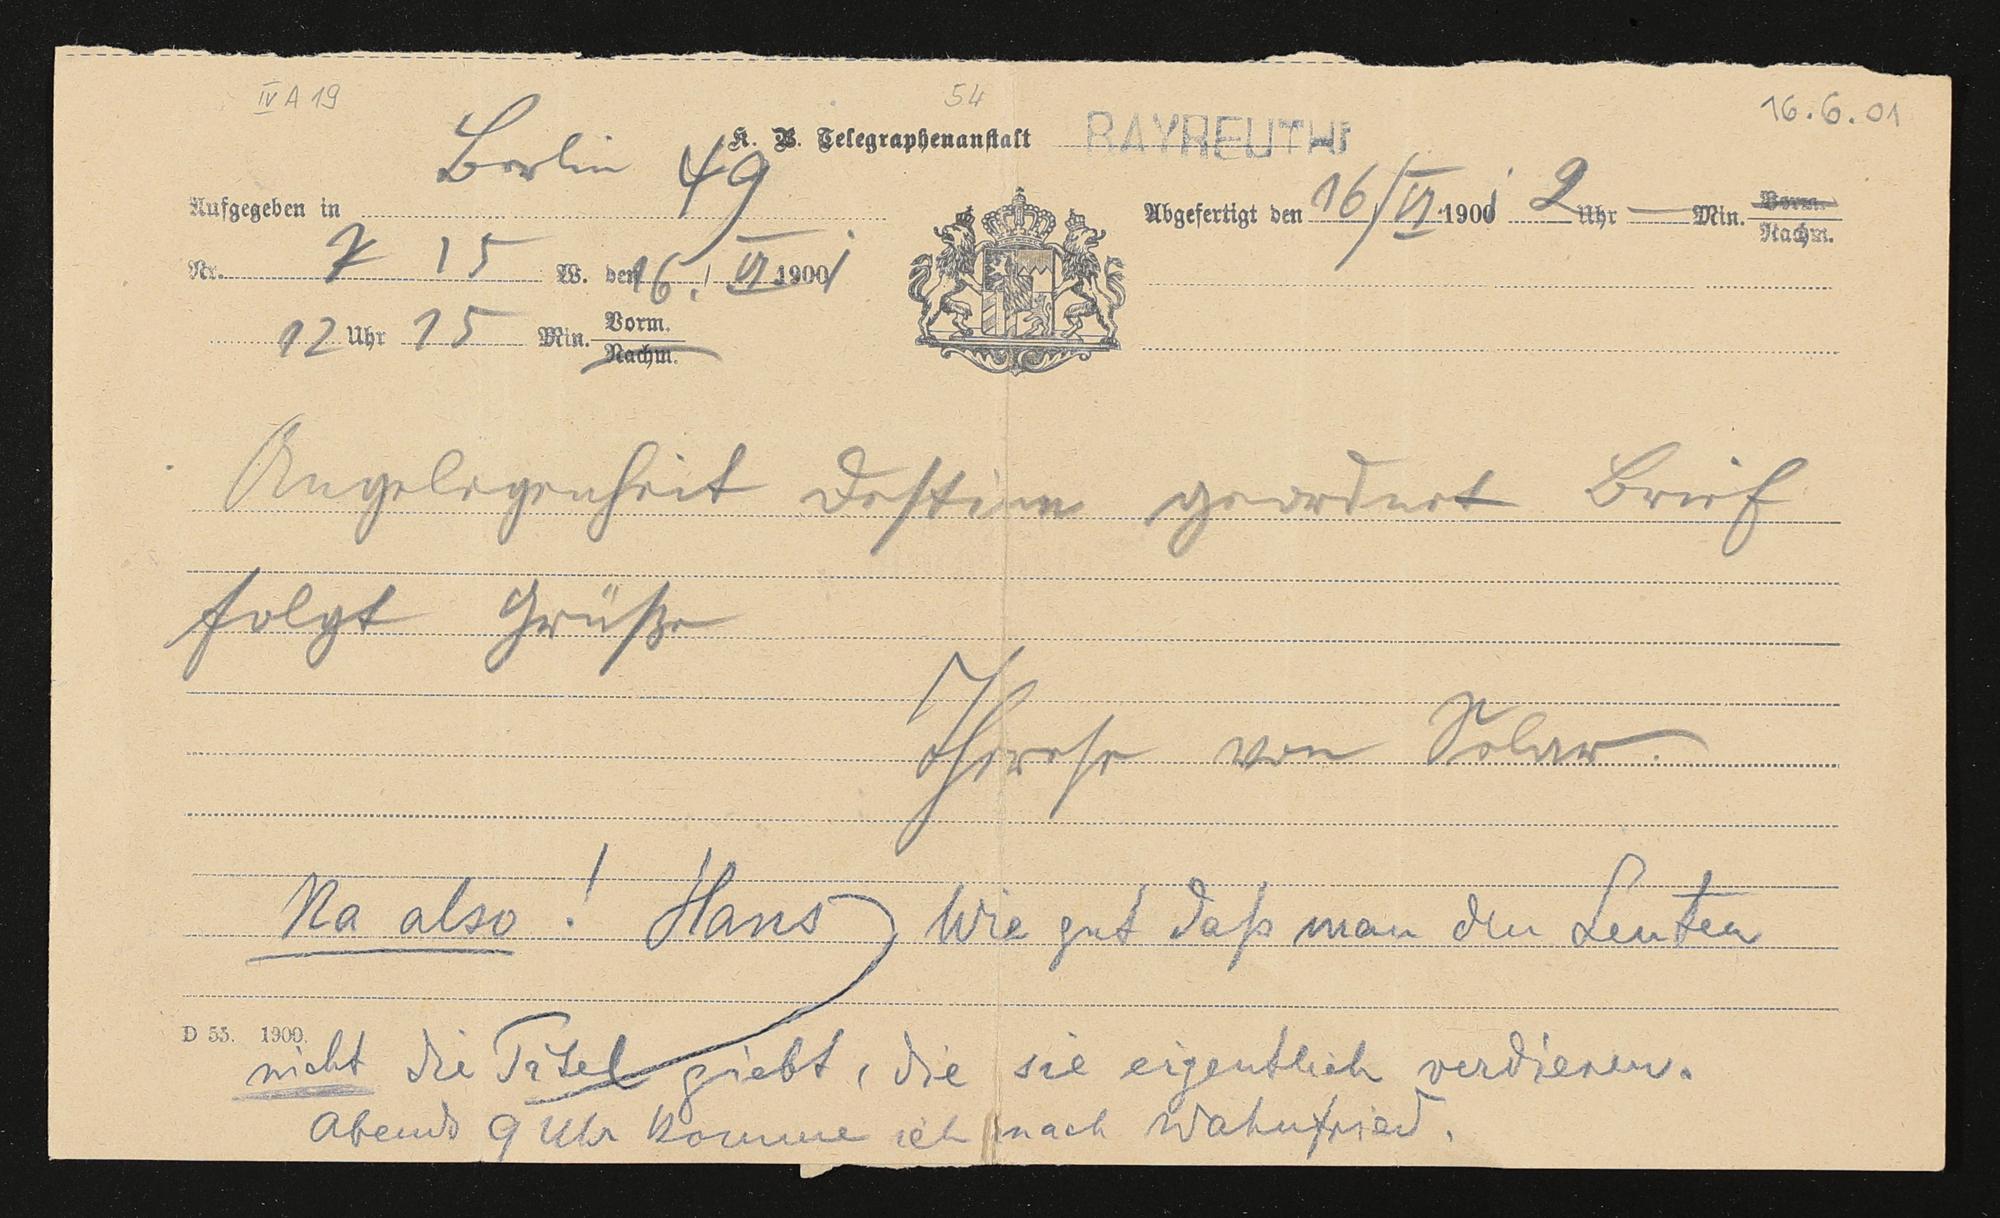 IV A 19
54
16.6.01
K. B. Telegraphenanstalt BAYREUTH
Aufgegeben in Berlin 49
Abgefertigt den 16/VI 1901 2 Uhr — Min. Vorm. Nachm.
Nr. 7 15 W. den 16./VI 1900/1
12 Uhr 15 Min. Vorm. Nachm.
Angelegenheit Destinn geordnet Brief
folgt Grüße
Therese von
Na also! Hans Wie gut daß man den Leuten
D 55. 1900.
nicht die Titel giebt, die sie eigentlich verdienen.
Abends 9 Uhr komme ich nach Wahnfried.